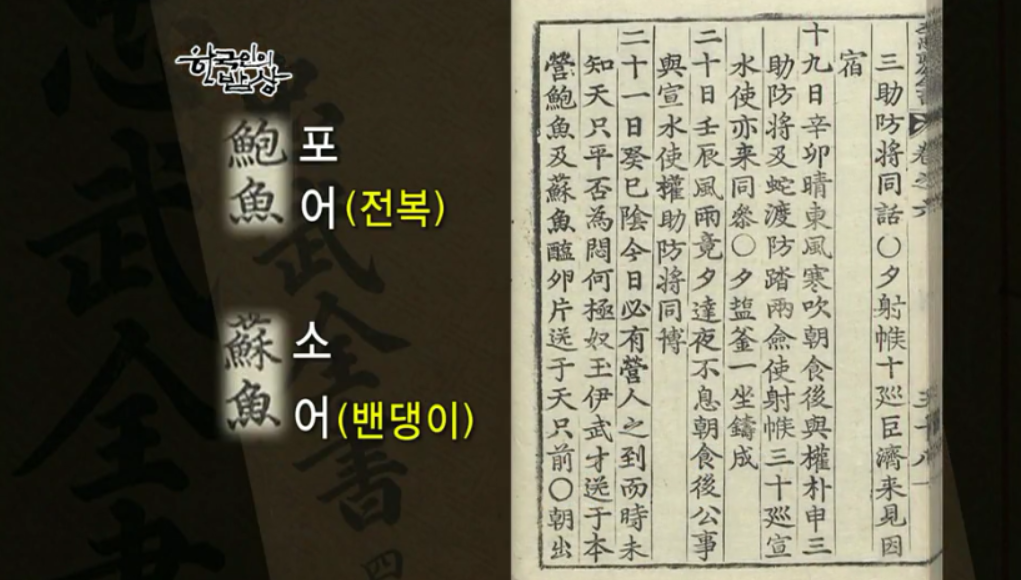 한국인의
밥상
鮑 포
魚 어(전복)
蘇 소
魚 어(밴댕이)
武全書
武全書 四
卷之六
三助防將同話〇夕射帿十廵巨濟来見因
宿
十九日辛卯晴東風寒吹朝食後與權朴申三
助防將及蛇渡防踏兩僉使射帿三十廵宣
水使亦来同叅〇夕盐釜一坐鑄成
二十日壬辰風雨竟夕達夜不息朝食後公事
與宣水使權助防將同博
二十一日癸巳陰今日必有營人之到而時未
知天只平否為悶何極奴玉伊武才送于本
營鮑魚及蘇魚醢卵片送于天只前〇朝出